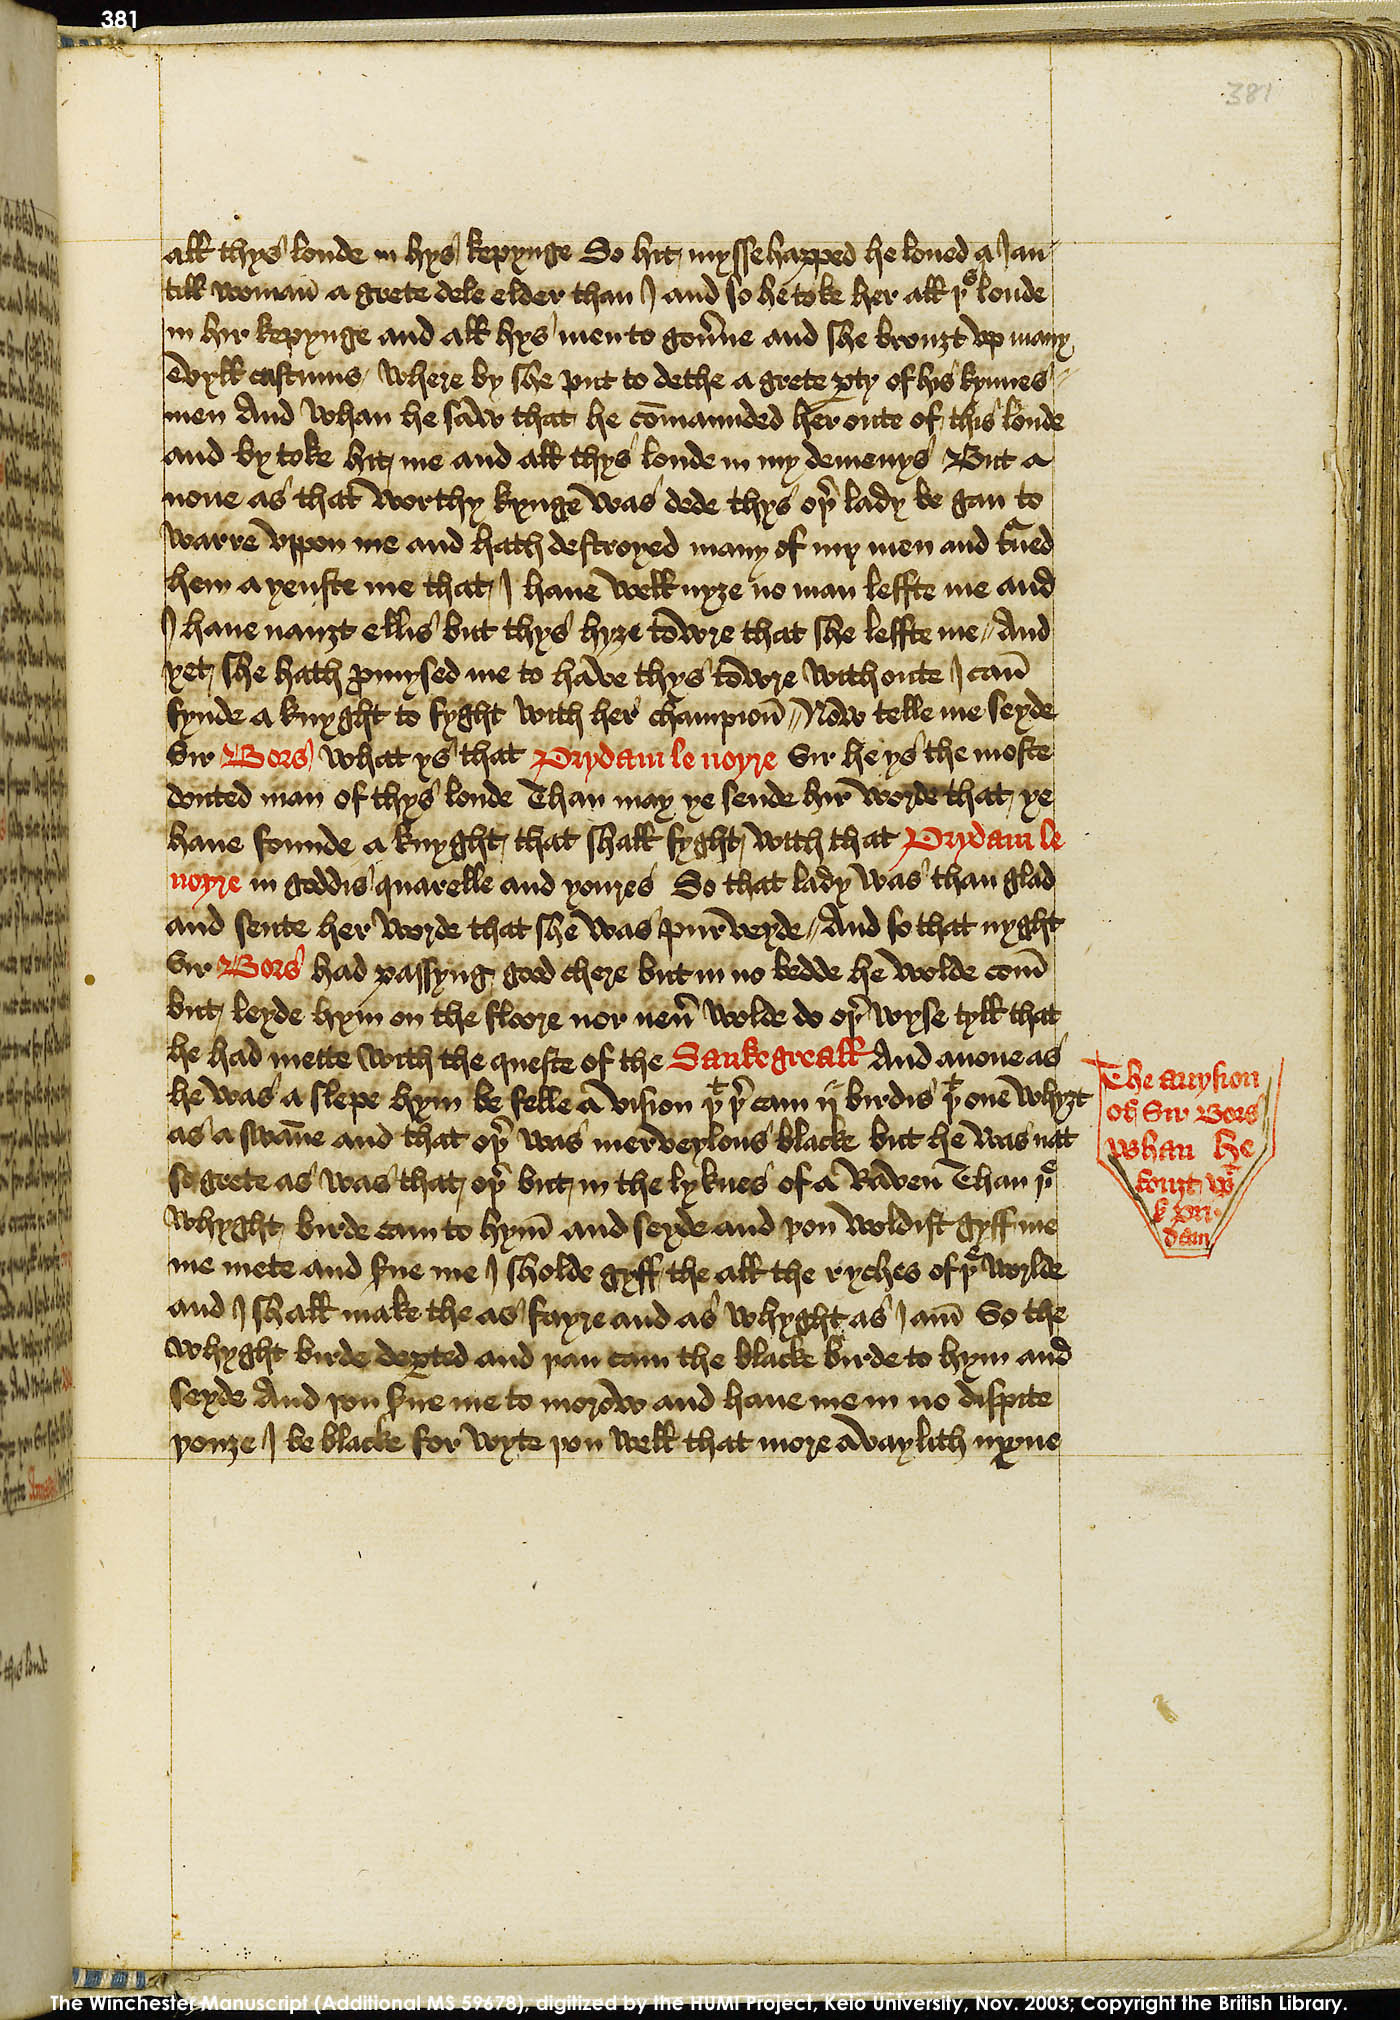 381
381
all thys londe in hys kepynge So hit mysse happed he loued a Jan
till womañ a grete dele elder than J and so he toke her all þs londe
in hir kepynge and all hys men to gou̾ne and she brouȝt vp many
evyll custums where by she put to dethe a grete ꝑty of his kynnes
men And whan he saw that he cōmaunded her oute of this londe
and by toke hit me and all thys londe in my demenys But a
none as that worthy kynge was dede thys oþ̾ lady be gan to
warre vppon me and hath destroyed many of my men and tͣued
hem a yenste me that J haue well nyȝe no man leffte me and
J haue nauȝt ellis but thys hyȝe towre that she leffte me // And
yet she hath ꝓmysed me to have thys towre with oute J cañ
fynde a knyght to fyght with her champioñ // Now telle me seyde
Sir Bors what ys that Prydam le noyre Sir he ys the moste
douted man of thys londe Than may ye sende hir worde that ye
haue founde a knyght that shall fyght with that Prydam le
noyre in goddis quarelle and youres So that lady was than glad
and sente her worde that she was purveyde // And so that nyght
Sir Bors had passyng good chere but in no bedde he wolde com̄
but leyde hym on the floore nor neu̾ wolde do oþ̾ wyse tyll that
he had mette with the queste of the Sankegreall And anone as
he was a slepe hym be felle a vision þt þ̾ cam ij birdis þt one whyȝt
as a swāne and that oþ̾ was merveylous blacke but he was nat
so grete as was that oþ̾ but in the lyknes of a Raven Than þe
whyght birde cam to hym̄ and seyde and þou woldist gyff me
me mete and s̾ue me J sholde gyff the all the ryches of þe worlde
and J shall make the as fayre and as whyght as J am̄ So the
whyght birde deꝑted and þan cam the blacke birde to hym and
seyde And þou s̾ue me to morow and haue me in no dispite
þouȝe J be blacke for wyte þou well that more avaylith myne
The avysion
off Sir Bors
whan he
fouȝt wt
k Pri
dam
this londe
The Winchester Manuscript (Additional MS 59678), digitized by the HUMI Project, Keio University, Nov. 2003; Copyright the British Library.